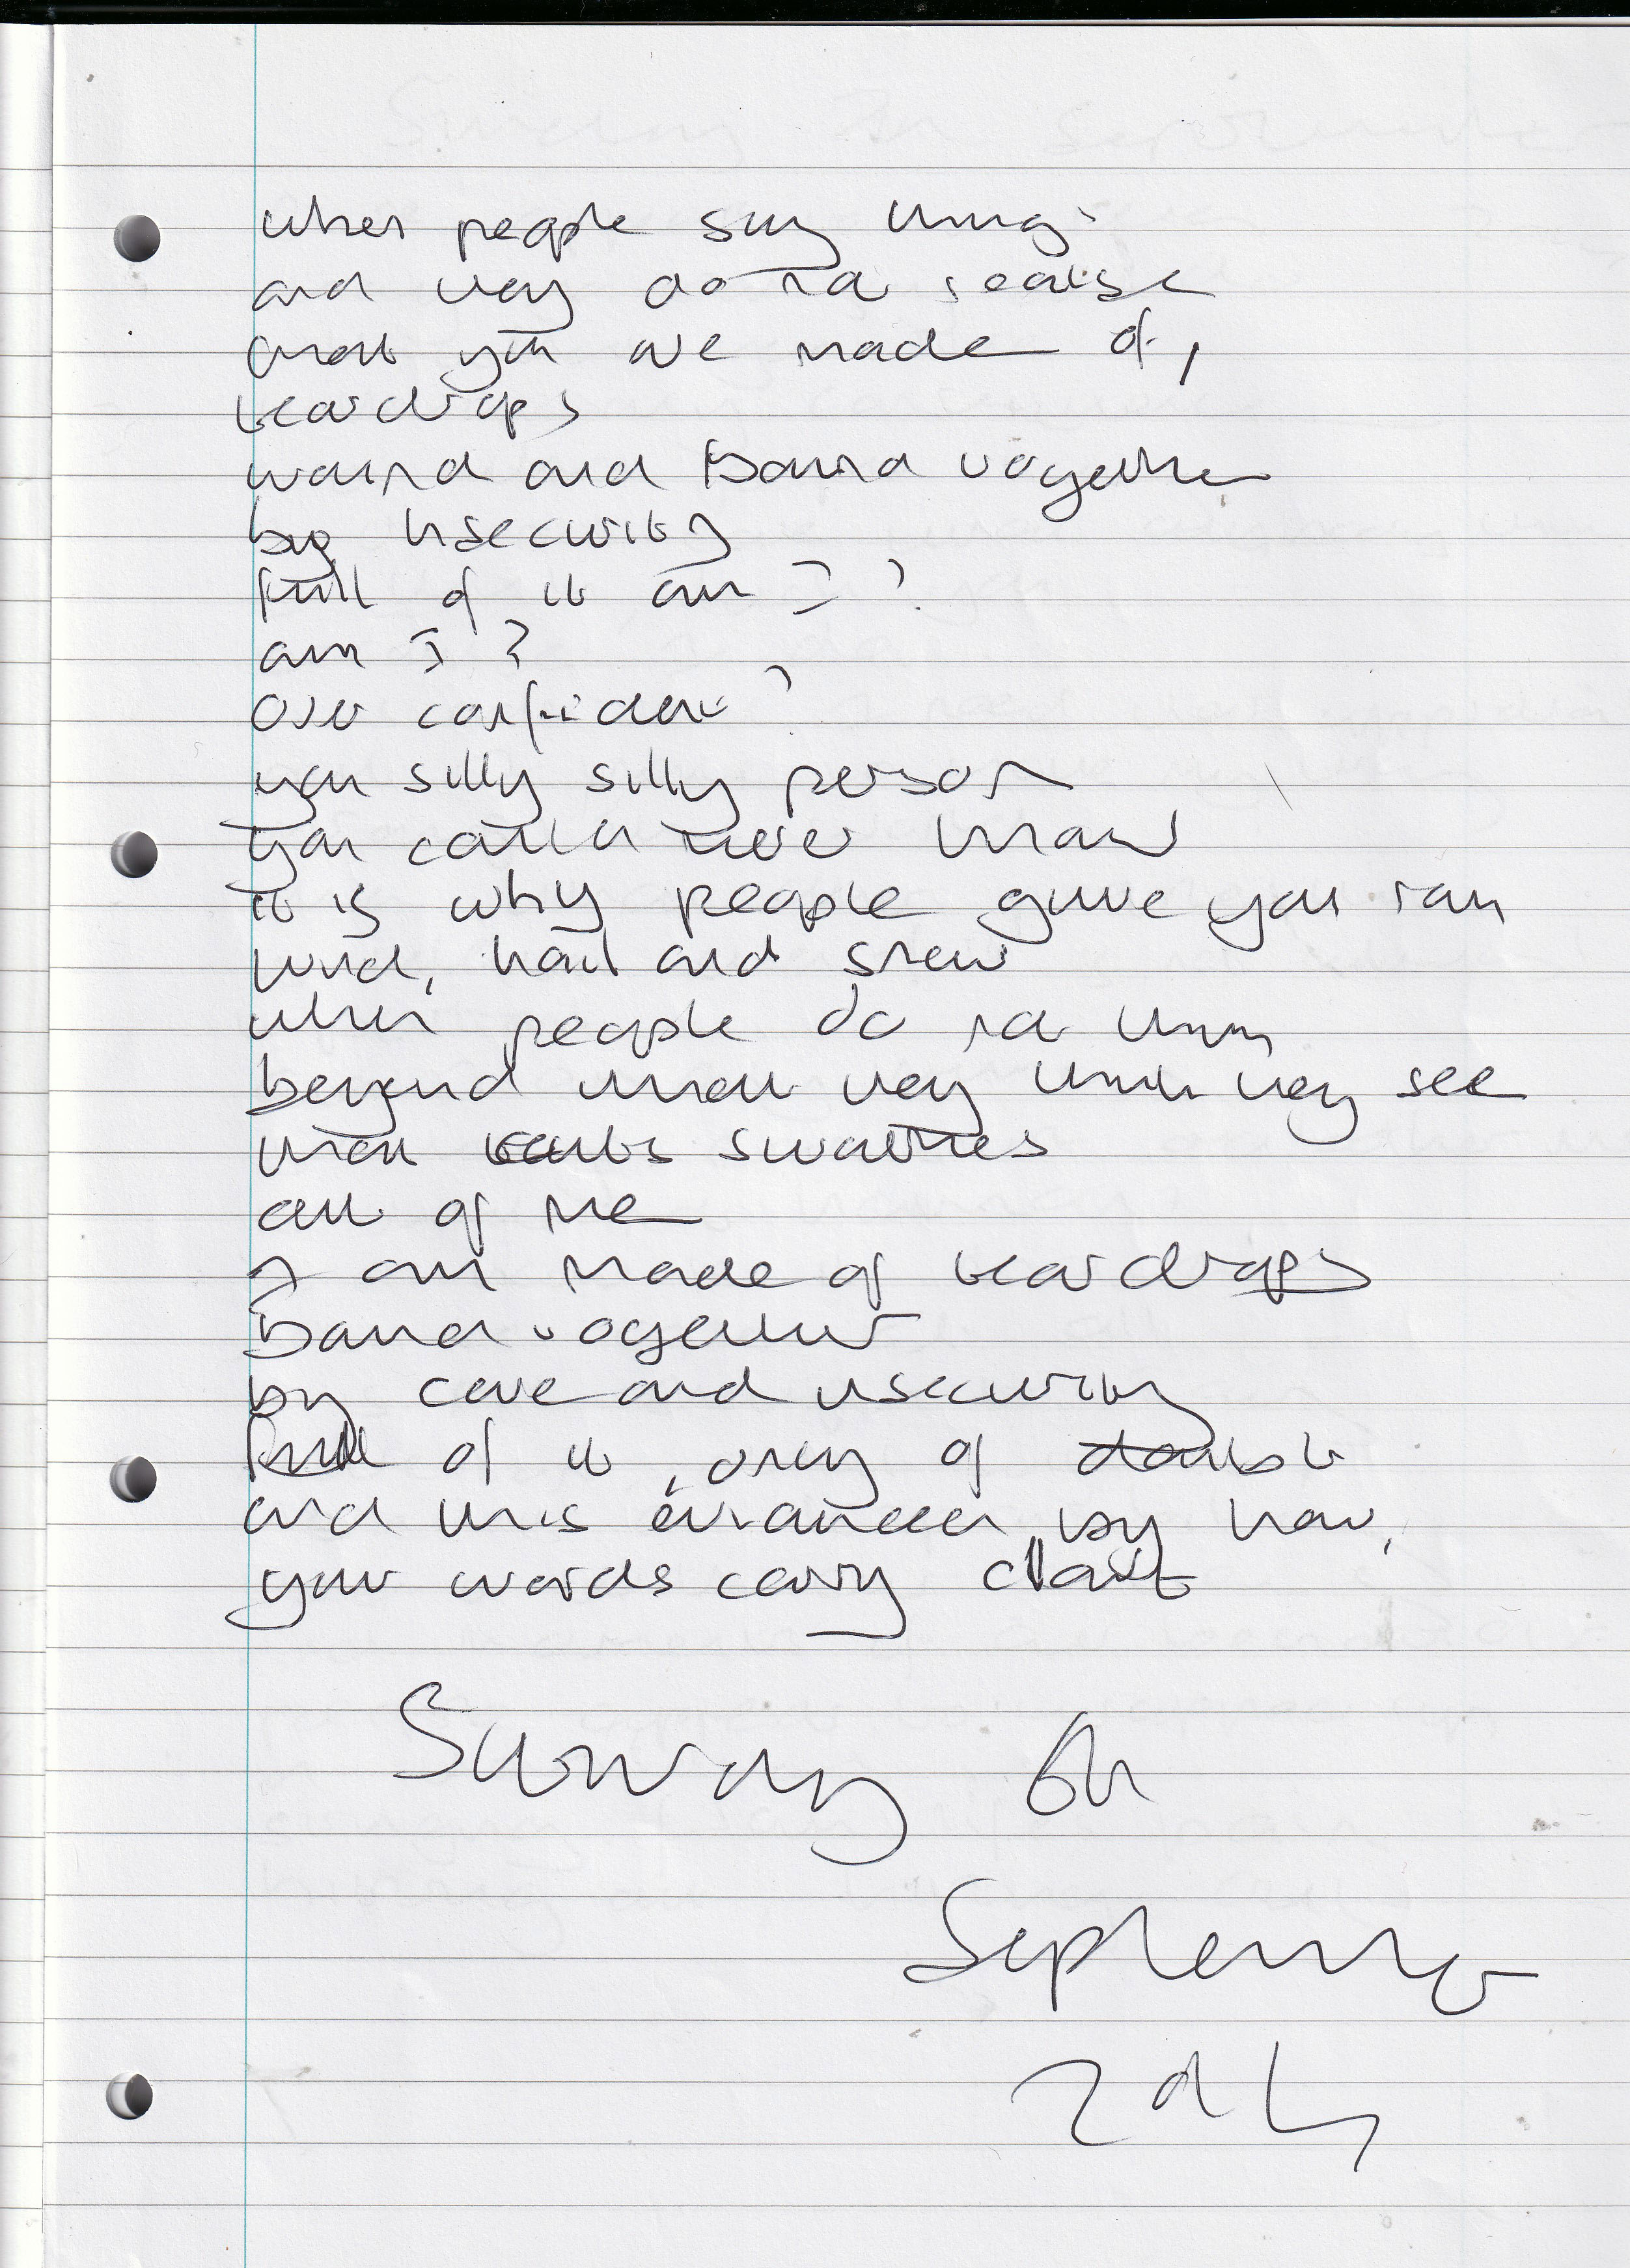 when people say things
and they do not realise
what you are made of,
teardrops
wound and bound together
by insecurity
full of it am I?
am I?
over confident?
you silly silly person
you could never know
it is why people give you rain
wind, hail and snow
when people do not think
beyond what they think they see
that doubts swathes
all of me
I am made of teardrops
bound together
by care and insecurity
full of it, only of doubt
and this enhanced by how,
your words carry clout
Saturday 6th
September
2014